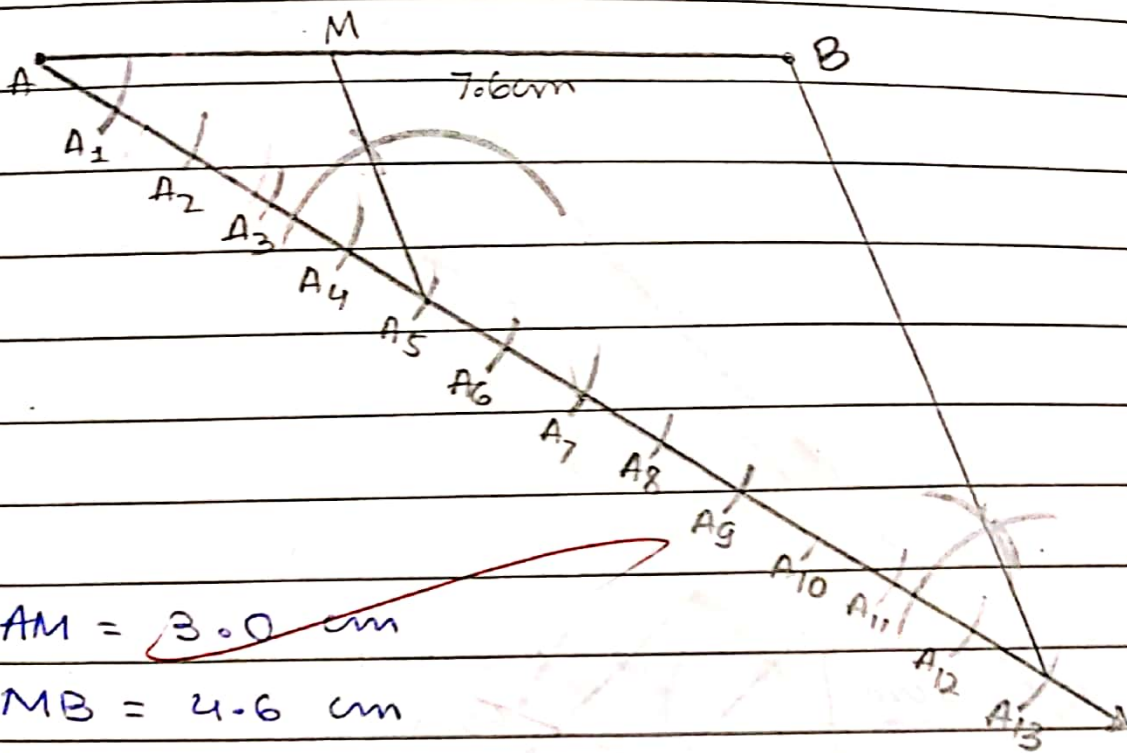 M
A
B
7.6cm
A1
A2
A3
A4
A5
A6
A7
A8
A9
A10
A11
A12
A13
AM = 3.0 cm
MB = 4.6 cm